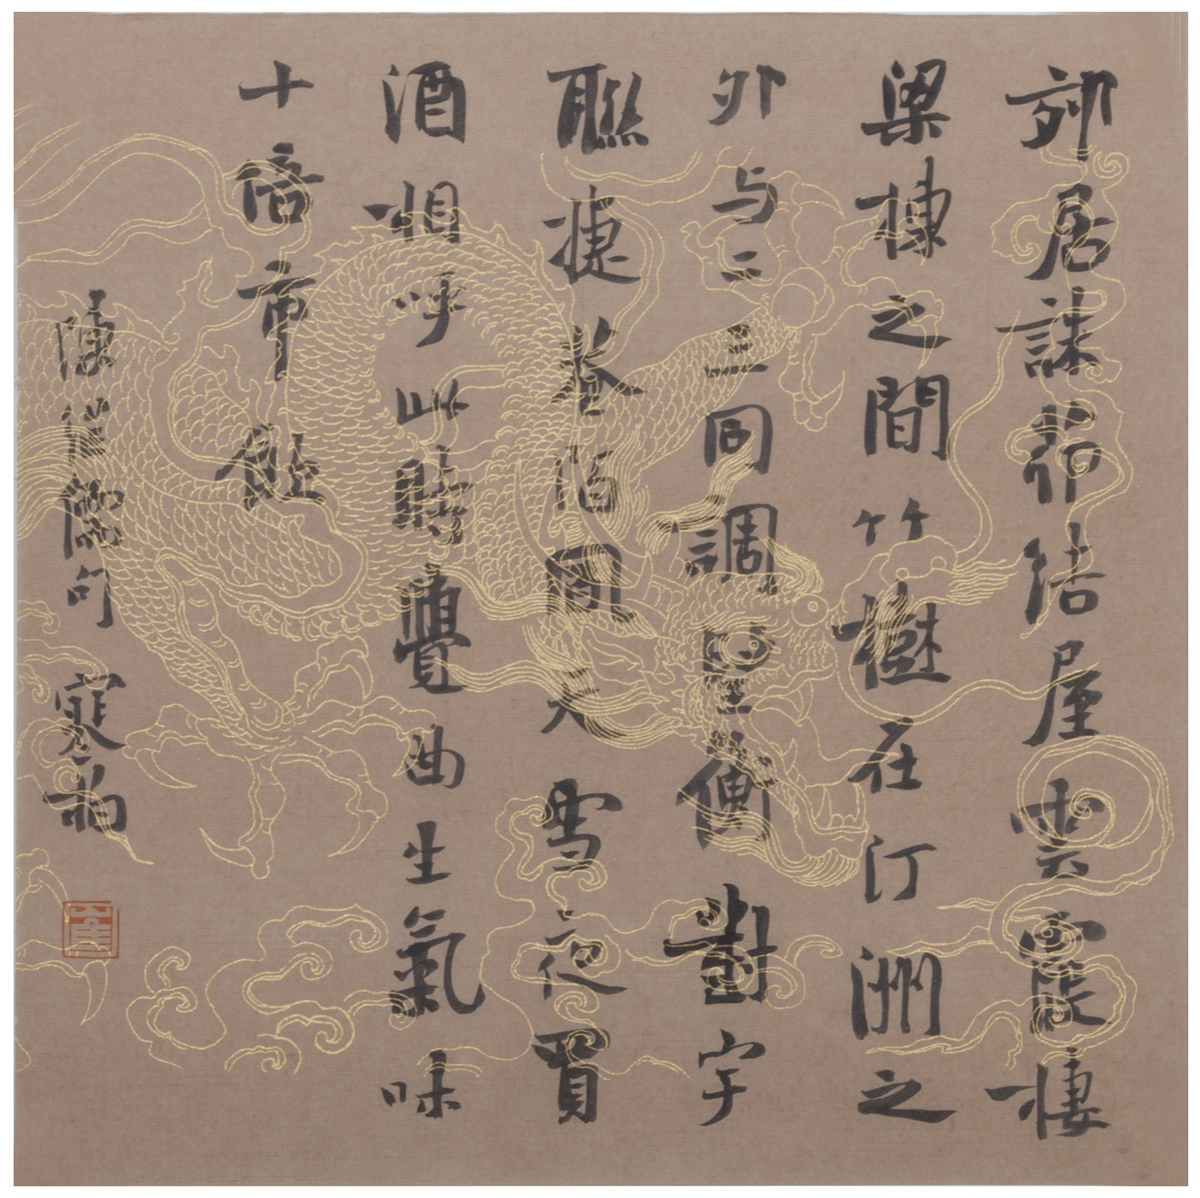 郊居誅茆結屋雲霞棲
梁棟之間竹樹在汀洲之
外与二三同調望衡對宇
聯捷巷陌風天雪夜買
酒相呼此時覺曲生氣味
十倍市飲
陳継儒句 寒柏